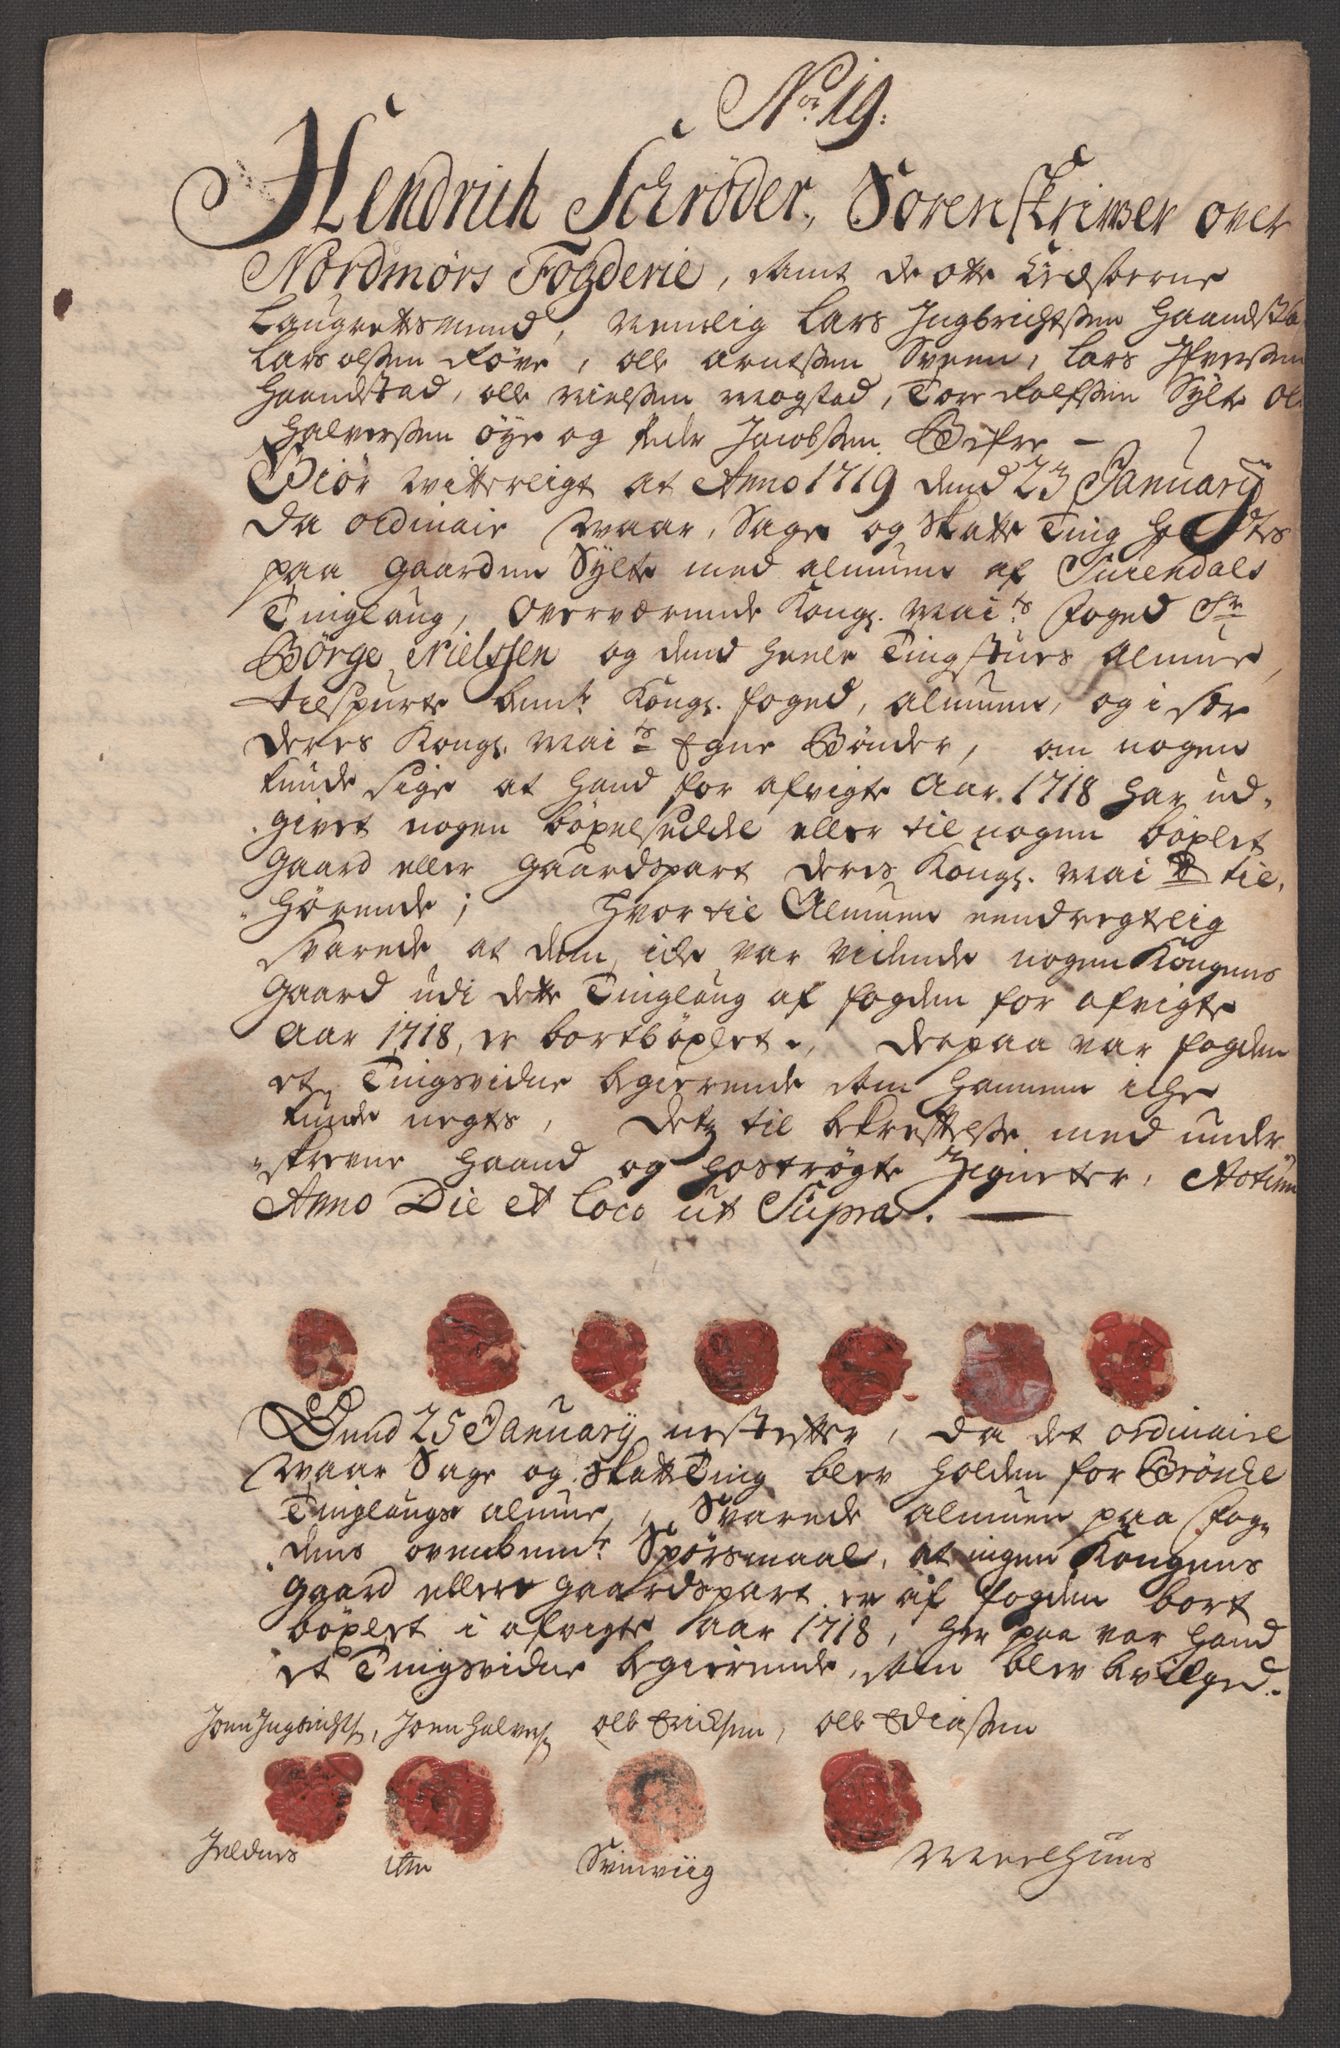 No. 19.
Hendrich Schrøder, Sorenskriwer over
Nordmørs Fogderie, samt de otte Eedsorne
Laugrettsmend, Nemlig Lars Ingbrichtssen Haandsta
Lars olssen Røve, olle arnessen Sveen, Lars Ifverssen
Haandstad, olle Nielssen Mogstad, Tore Rolfssen Sylte ole
Halverssen øye og Peder Jacobssen Bæfre —
Giør witterligt at Anno 1719 dend 23 January
da ordinair waar, Sage og Skatte Ting holtes
paa gaarden Sylte med almuen af Surendals
Tinglaug, Overværende Kongl. Maits foged Sr
Børge Nielssen og dend heele Tingsøgends almue,
tilspurte bemte Kongl. foged, almuen, og i sær
deres Kongl. Maits Egne Bønder, om nogen
kunde sige at hand for afvigte Aar 1718 har ud-
givet nogen bøxelseddel eller til nogen bøxlet
gaard eller gaardspart deres Kongl. Mait til-
hørende; Hvortil Almuen eendregtelig
svarede at dem icke var vidende nogen Kongens
gaard udi dette Tinglaug af fogden for afvigte
Aar 1718, er bortbøxlet, derpaa var fogden
et Tingsvidne begierende som hannem icke
kunde negtes, Dets til bekreftelsse med under-
skrevne Haand og hostrøgte Zigneter, Actum
Anno Die et loco ut Supra.
Dend 25 January nestefter, da det ordinaire
waar Sage og SkatteTing blev holden for Brønche
Tinglaugs almue, Svarede almuen paa fog-
dens ovenbemte Spørsmaal, at ingen Kongens
gaard ellere gaardspart er af fogden bort
bøxlet i afvigte Aar 1718, her paa var hand
et Tingsvidne begierende, som blev bevilged.
Joen Ingbrichts, Joen Halvers olle Ericksen, olle Ediassen
item
Svinviig